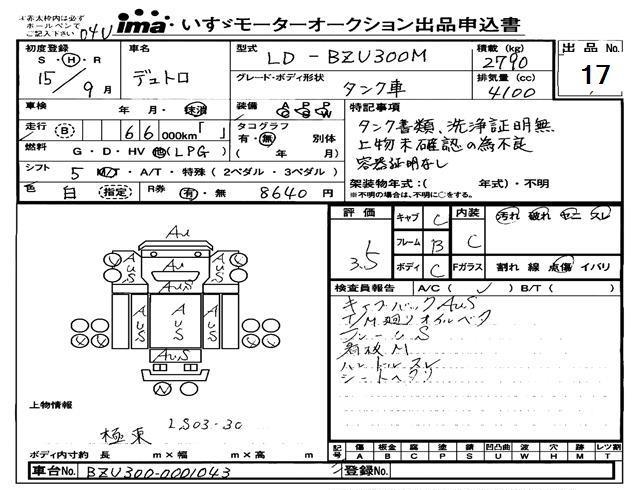 ※赤太枠内は必ず
ボールペンで
ご記入下さい
04U
ima いすゞモーターオークション出品申込書
初度登録
S・H・R
15/9月
車名
デュトロ
型式
LD-BZU300M
積載(kg)
2790
出品No.
17
グレード・ボディ形状
タンク車
排気量(cc)
4100
車検
年・月・抹消
装備
A C
P S
P W
特記事項
タンク書類、洗浄証明無
上物未確認の為不良
容器証明なし
走行
(B)
66000km「 」
タコグラフ
有・無 別体
( 年 月)
燃料
G・D・HV 他(LPG)
シフト
5 M/T・A/T・特殊(2ペダル・3ペダル)
架装物年式:( 年式)・不明
※不明の場合は、不明に○をする。
色
白 (指定)
R券
有・無
8640円
評価
3.5
キャブ C
フレーム B
ボディ C
内装 C
汚れ 破れ ヤニ スレ
Fガラス 割れ 線 点傷 イバリ
検査員報告
A/C( ✓ ) B/T( )
キャブバックAUS
T/M廻りオイルベタ
フレームS
看板M
ハンドルスレ
シートヘタリ
AU
AUS
AUS
AUS
AUS
AUS
AUS
N
上物情報
LS03-30
極東
ボディ内寸約 長 m×幅 m×高 m
記号
傷 A
板金 B
腐 C
塗 P
錆 S
凹凸曲 U
波 W
穴 H
跡 M
レツ割 T
車台No. BZU300-0001043
登録No.